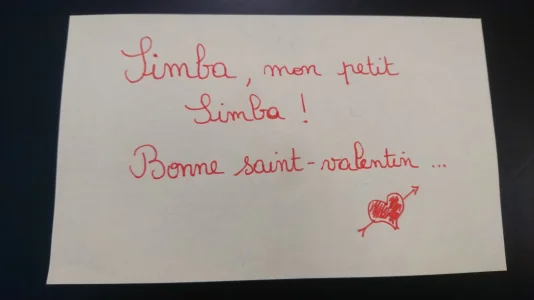 Simba, mon petit
Simba !
Bonne saint-valentin ...